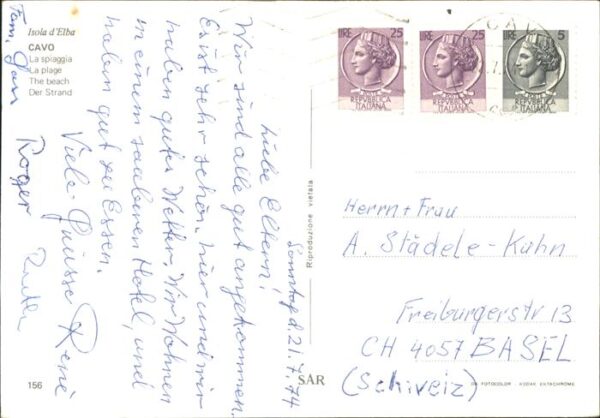 Isola d'Elba
CAVO
La spiaggia
La plage
The beach
Der Strand
156
Sonntag d. 21.7.74
Liebe Eltern!
Wir sind alle gut angekommen.
Es ist sehr schön hier und wir
haben gutes Wetter. Wir wohnen
in einem sauberen Hotel, und
haben gut zu Essen.
Viele Grüsse René
Roger Ruth
Fam.
Riproduzione vietata
SAR
FOTOCOLOR KODAK EKTACHROME
LIRE 25
POSTE
REPVBBLICA
ITALIANA
LIRE 25
POSTE
REPVBBLICA
ITALIANA
LIRE 5
POSTE
REPVBBLICA
ITALIANA
Herrn + Frau
A. Städele-Kuhn
Freiburgerstr 13
CH 4057 BASEL
(Schweiz)